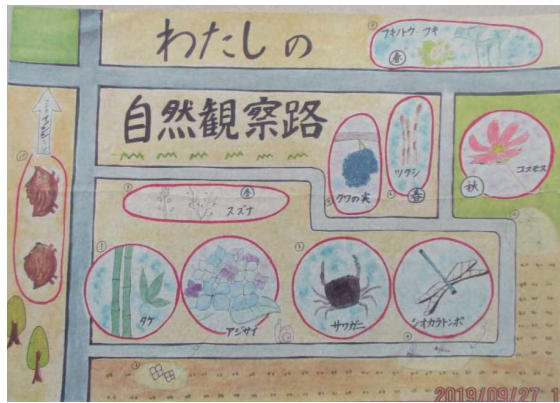 わたしの
自然観察路
フキノトウ・フキ
春
クワの実
ツクシ
春
コスモス
秋
スズナ
タケ
アジサイ
サワガニ
シオカラトンボ
2019/09/27 1